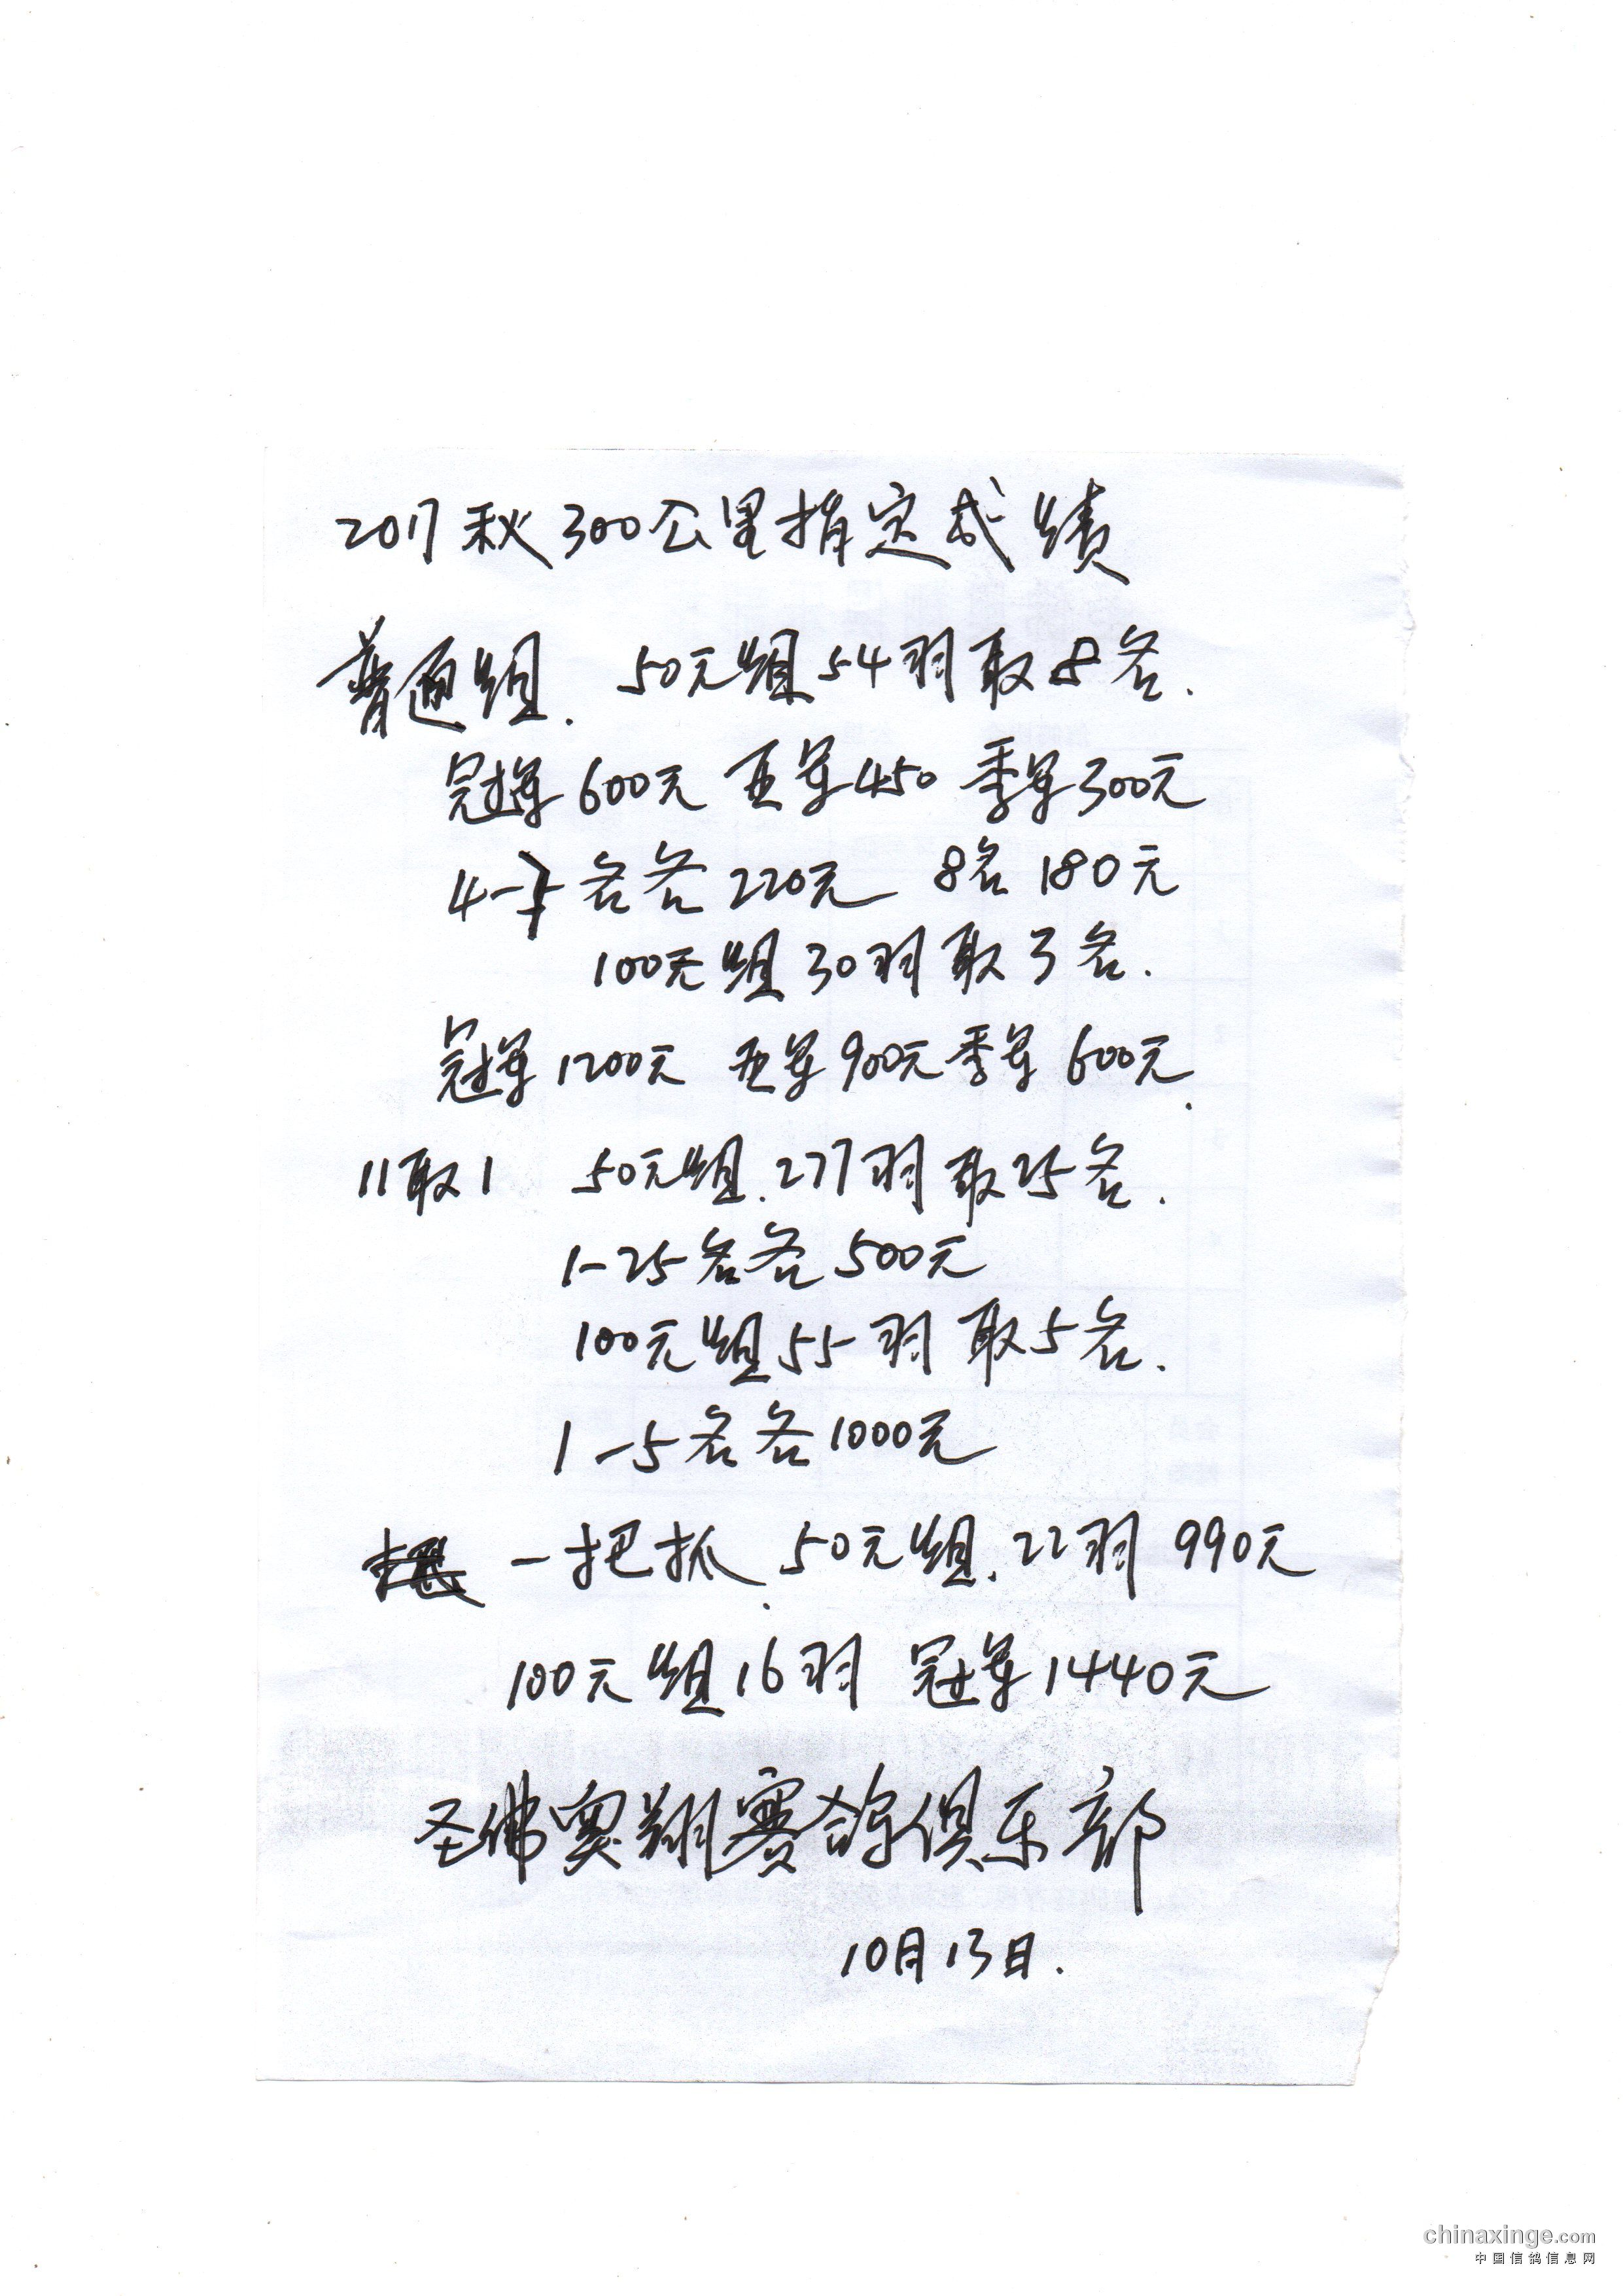 2017秋300公里指定成绩
普通组. 50元组54羽取8名.
冠军600元 亚军450 季军300元
4-7名各220元 8名180元
100元组30羽取3名.
冠军1200元 亚军900元季军600元.
11取1 50元组.277羽取25名.
1-25名各500元
100元组55羽取5名.
1-5名各1000元
一把抓.50元组.22羽 990元
100元组16羽 冠军1440元
圣佛奥翔赛鸽俱乐部
10月13日.
chinaxinge.com
中国信鸽信息网